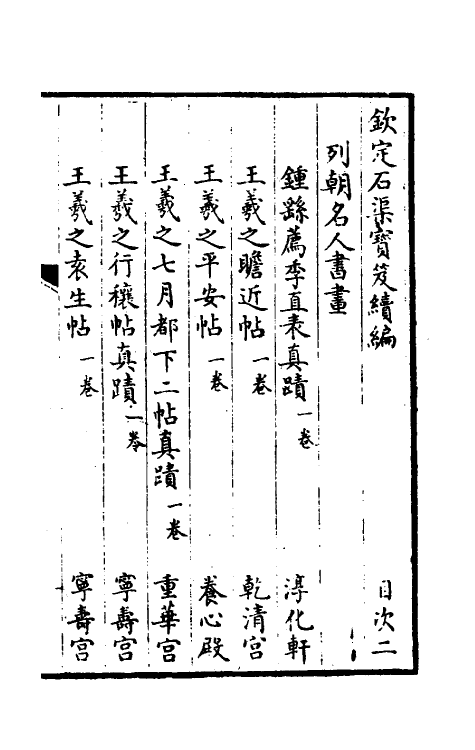 欽定石渠寶笈續編 目次二
列朝名人書畫
鍾繇薦季直表真蹟一卷 淳化軒
王羲之瞻近帖一卷 乾清宮
王羲之平安帖一卷 養心殿
王羲之七月都下二帖真蹟一卷 重華宮
王羲之行穰帖真蹟一卷 寧壽宮
王羲之袁生帖一卷 寧壽宮